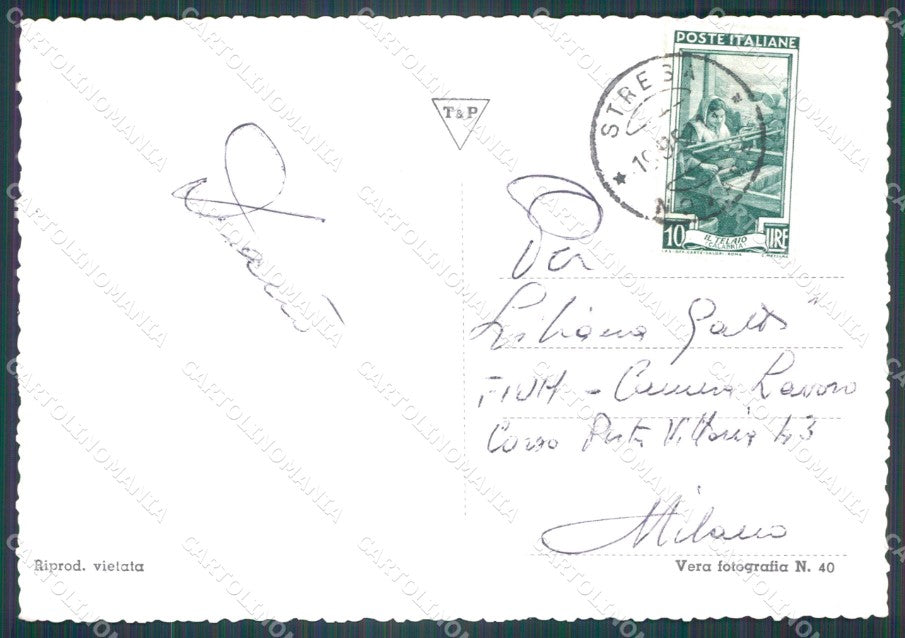 POSTE ITALIANE
STRESA
10 LIRE
IL TELAIO
CALABRIA
T&P
Liliana
FIOM - Camera Lavoro
Corso Porta Vittoria 43
Milano
Riprod. vietata
Vera fotografia N. 40
CARTOLINOMANIA